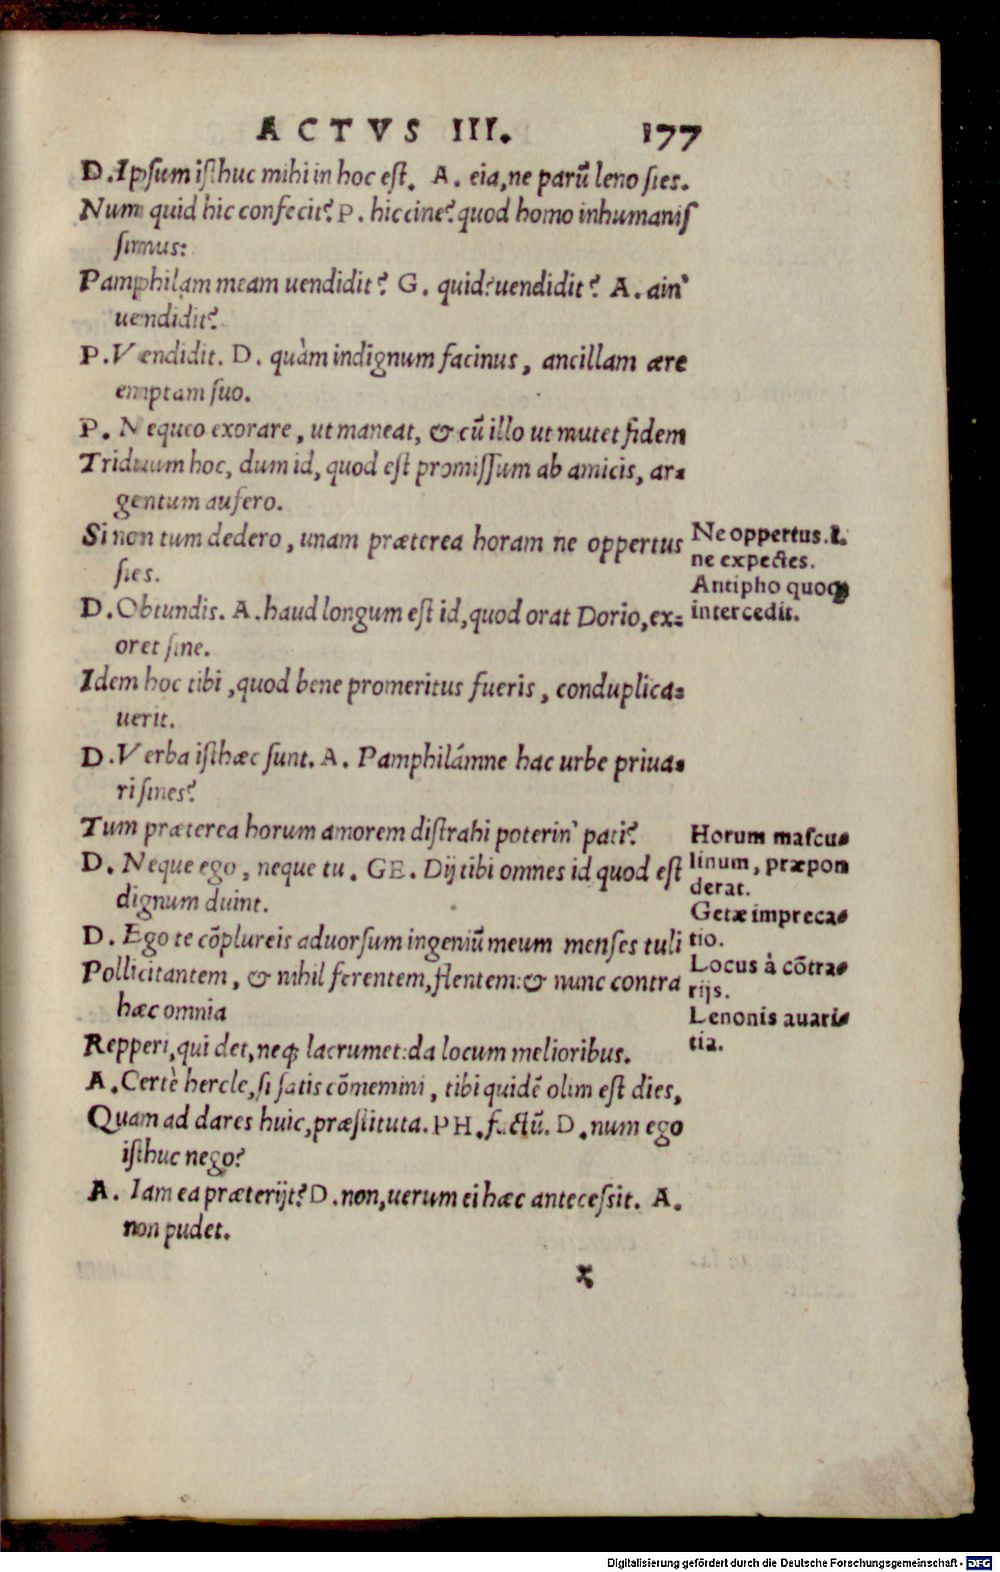 ACTVS III. 177
D. Ipsum isthuc mihi in hoc est. A. eia, ne parũ leno sies.
Num quid hic confecit? P. hiccine? quod homo inhumanis
simus:
Pamphilam meam uendidit? G. quid? uendidit? A. ain'
uendidit?
P. Vendidit. D. quàm indignum facinus, ancillam ære
emptam suo.
P. Nequeo exorare, ut maneat, & cũ illo ut mutet fidem
Triduum hoc, dum id, quod est promissum ab amicis, ar=
gentum aufero.
Si non tum dedero, unam præterea horam ne oppertus
sies.
D. Obtundis. A. haud longum est id, quod orat Dorio, ex=
oret sine.
Idem hoc tibi, quod bene promeritus fueris, conduplica=
uerit.
D. Verba isthæc sunt. A. Pamphilámne hac urbe priua=
ri sines?
Tum præterea horum amorem distrahi poterin' pati?
D. Neque ego, neque tu. GE. Dij tibi omnes id quod est
dignum duint.
D. Ego te cõplureis aduorsum ingeniũ meum menses tuli
Pollicitantem, & nihil ferentem, flentem: & nunc contra
hæc omnia
Repperi, qui det, neqȝ lacrumet: da locum melioribus.
A. Certè hercle, si satis cõmemini, tibi quidẽ olim est dies,
Quam ad dares huic, præstituta. PH. factũ. D. num ego
isthuc nego?
A. Iam ea præterijt? D. non, uerum ei hæc antecessit. A.
non pudet.
Ne oppertus. I.
ne expectes.
Antipho quoqȝ
intercedit.
Horum mascu=
linum, præpon
derat.
Getæ impreca=
tio.
Locus à cõtra=
rijs.
Lenonis auari=
tia.
Digitalisierung gefördert durch die Deutsche Forschungsgemeinschaft - DFG